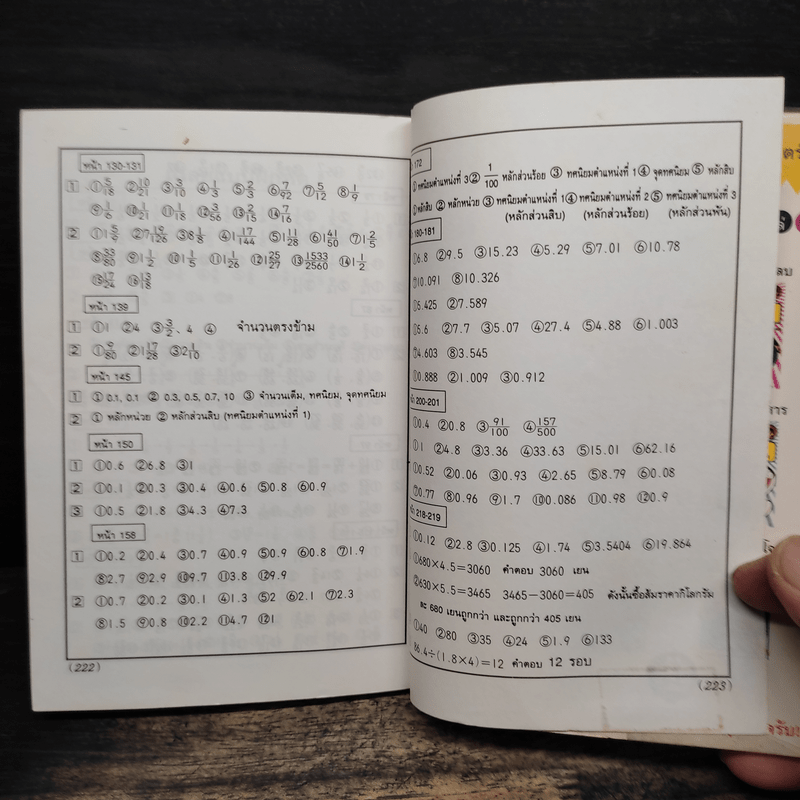 หน้า 130-131
1 ①5/18 ②10/21 ③3/10 ④1/3 ⑤2/3 ⑥7/92 ⑦5/12 ⑧1/9
⑨1/6 ⑩1/21 ⑪1/18 ⑫3/56 ⑬2/15 ⑭7/16
2 ①1 5/9 ②7 19/126 ③8 1/8 ④1 17/144 ⑤1 11/28 ⑥1 41/50 ⑦1 2/5
⑧53/80 ⑨1 1/2 ⑩1 1/5 ⑪1 1/26 ⑫1 25/27 ⑬1533/2560 ⑭1 1/2
⑮17/24 ⑯13/18
หน้า 139
1 ①1 ②4 ③3/2, 4 ④ จำนวนตรงข้าม
2 ①9/80 ②1 17/28 ③2 1/10
หน้า 145
1 ① 0.1, 0.1 ② 0.3, 0.5, 0.7, 10 ③ จำนวนเต็ม, ทศนิยม, จุดทศนิยม
2 ① หลักหน่วย ② หลักส่วนสิบ (ทศนิยมตำแหน่งที่ 1)
หน้า 150
1 ①0.6 ②6.8 ③1
2 ①0.1 ②0.3 ③0.4 ④0.6 ⑤0.8 ⑥0.9
3 ①0.5 ②1.8 ③4.3 ④7.3
หน้า 158
1 ①0.2 ②0.4 ③0.7 ④0.9 ⑤0.9 ⑥0.8 ⑦1.9
⑧2.7 ⑨2.9 ⑩9.7 ⑪3.8 ⑫9.9
2 ①0.7 ②0.2 ③0.1 ④1.3 ⑤2 ⑥2.1 ⑦2.3
⑧1.5 ⑨0.8 ⑩2.2 ⑪4.7 ⑫1
(222)
172
① ทศนิยมตำแหน่งที่ 3 ② 1/100 หลักส่วนร้อย ③ ทศนิยมตำแหน่งที่ 1 ④ จุดทศนิยม ⑤ หลักสิบ
①หลักสิบ ② หลักหน่วย ③ ทศนิยมตำแหน่งที่ 1 ④ ทศนิยมตำแหน่งที่ 2 ⑤ ทศนิยมตำแหน่งที่ 3
(หลักส่วนสิบ) (หลักส่วนร้อย) (หลักส่วนพัน)
180-181
①6.8 ②9.5 ③15.23 ④5.29 ⑤7.01 ⑥10.78
⑦10.091 ⑧10.326
①5.425 ②7.589
①5.6 ②7.7 ③5.07 ④27.4 ⑤4.88 ⑥1.003
⑦4.603 ⑧3.545
①0.888 ②1.009 ③0.912
200-201
①0.4 ②0.8 ③91/100 ④157/500
①1 ②4.8 ③3.36 ④33.63 ⑤15.01 ⑥62.16
①0.52 ②0.06 ③0.93 ④2.65 ⑤8.79 ⑥0.08
⑦0.77 ⑧0.96 ⑨1.7 ⑩0.086 ⑪0.98 ⑫0.9
218-219
①0.12 ②2.8 ③0.125 ④1.74 ⑤3.5404 ⑥19.864
①680×4.5=3060 คำตอบ 3060 เยน
②630×5.5=3465 3465−3060=405 ดังนั้นซื้อส้มราคากิโลกรัม
ละ 680 เยนถูกกว่า และถูกกว่า 405 เยน
①40 ②80 ③35 ④24 ⑤1.9 ⑥133
86.4÷(1.8×4)=12 คำตอบ 12 รอบ
(223)